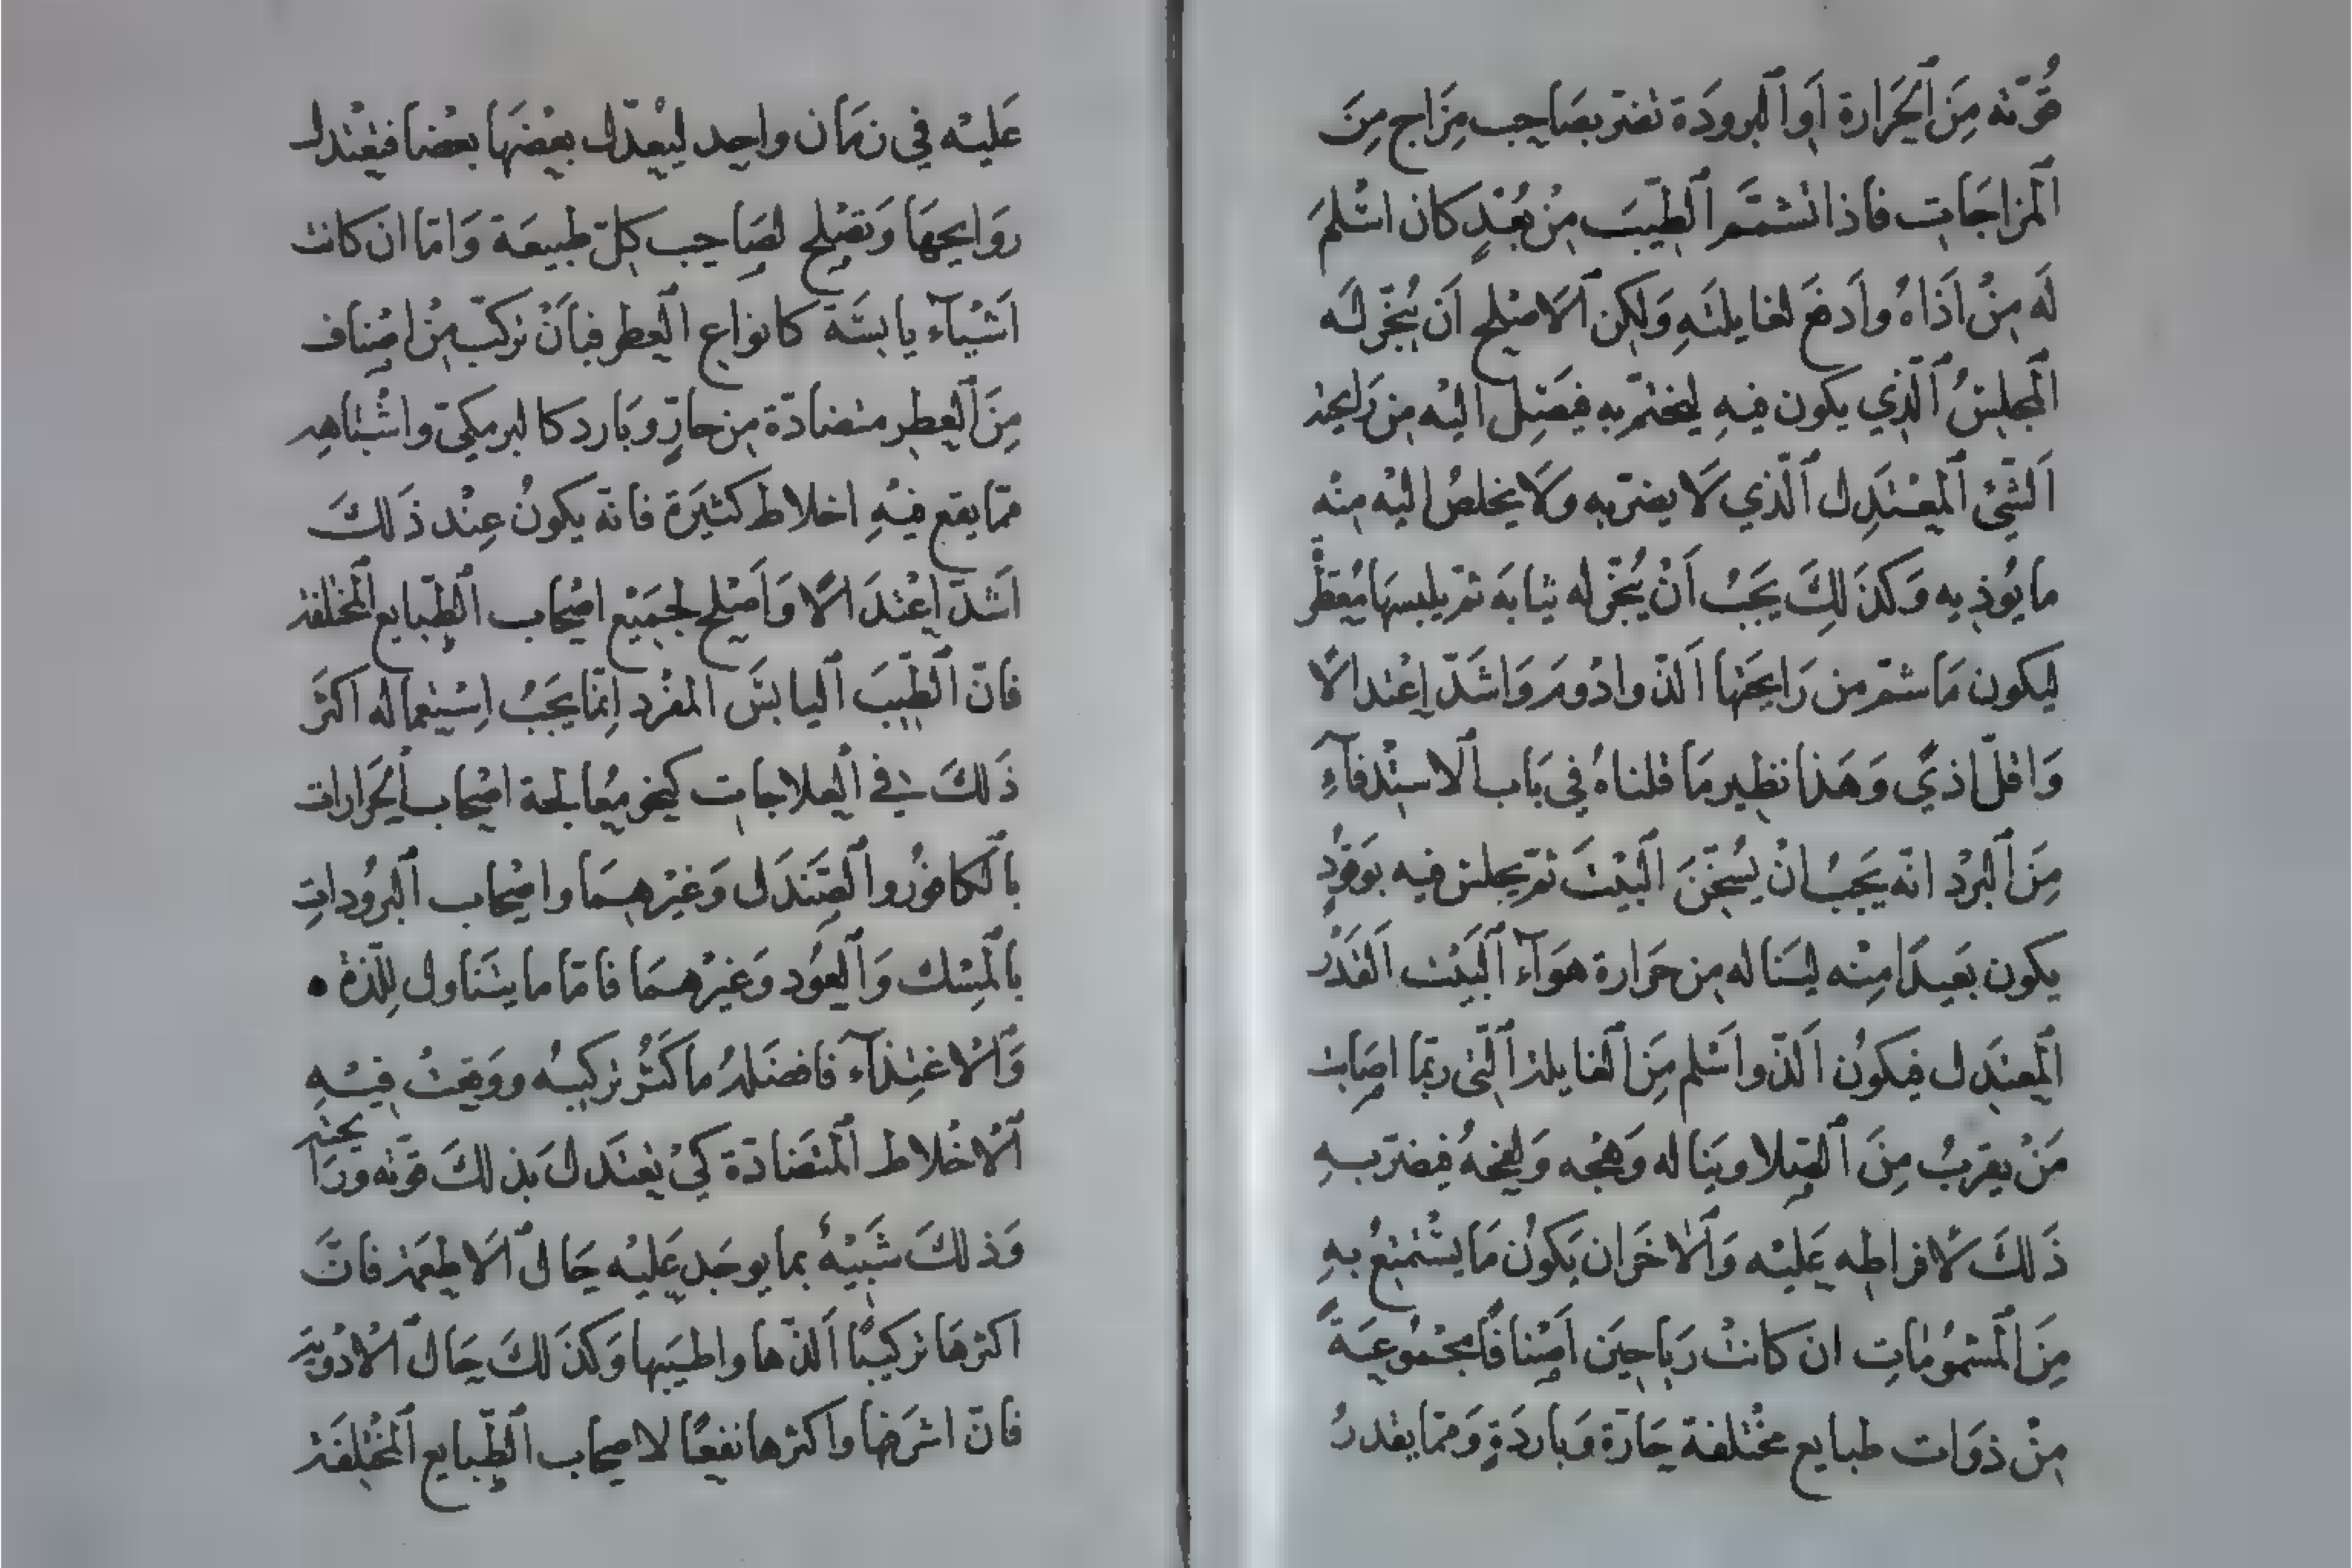 قُوّته مِنَ ٱلحَرارة اَو ٱلبرودَة تضرّ بصَاحِب مِزَاج مِنَ
ٱلمزاجَات فاذا تشمّم ٱلطِّيبَ مِنْ بُعْدٍ كان اسْلمَ
لَه مِنْ اَذَاهُ وادفعَ لغايلتهِ وَلكِن ٱلاصْلح اَن يُبَخَّر لَه
ٱلمجلِسُ ٱلّذي يكون فيهِ ليختمّ به فيَصِل اليْه مِن رَايحة
اَلشّئ ٱلمعْتَدِل ٱلّذي لَا يضرّ به ولَا يخلصُ اليْه مِنْه
ما يُوذيه وَكذَلِكَ يَجَبُ اَنْ يُبخّر له ثيابَه ثمّ يلبسهَا مُعَطَّرة
ليكون مَا شمّ مِن رَايحَتها اَلذّ وادْومَ وَاشَدّ اِعْتدالًا
وَاقلّ اذىً وَهَذا نظير مَا قلناهُ في بَاب ٱلاسْتِدْفآءِ
مِنَ ٱلبَرْد انّه يَجَبُ انْ يُسَخّنَ ٱلبَيْتَ ثمّ يجلسْ فيه بوَقُودٍ
يكون بَعَيدًا مِنْه ليَناله مِن حَرَارة هوَآء ٱلبَيْت ٱلقَدْر
ٱلمعتَدل فيكوُن اَلذّ واَسْلم مِنَ ٱلغايلة ٱلّتى ربّما اصَابت
مَنْ يقرَبُ مِنَ ٱلصِّلا وينَاله وَهجُه وَلفحُهُ فيضرّ بهِ
ذَلكَ لافراطِه عَليْه وَٱلاخَر ان يَكوُن مَا يسْتمتِعُ بهِ
مِنَ ٱلمشمُومَاتِ ان كانتْ رَياحِيَن اَصْنافًا مَجْمُوعَةً
مِنْ ذوَات طبايع مخْتلفة حَارّة وَبارِدَةٍ وَممّا يقدرُ
عَليْه في زمَان واحِد ليُعدّل بعْضهَا بعْضا فيَعْتدل
روَايحهَا وَتصْلح لصَاحِب كلّ طبيعَة وَامّا ان كانت
اَشيآء يابسَة كانواع ٱلعِطر فبِأنْ تركّب مِنْ اصْناف
مِنَ ٱلعِطرِ متضادّة مِن حارٍّ وبَارد كالبرمكىّ واشْبَاهِه
ممّا يقع فيْهِ اخلاط كثيَرة فانّه يكونُ عِنْد ذَلكَ
اَشدّ اِعْتدَالًا وَاَصْلح لجميْع اصْحاب ٱلطّبايع ٱلمخْتلفة
فانّ ٱلطّيبَ ٱليابسَ المفْرد اِنمّا يَجَبُ اِسْتِعماله اكثَر
ذَلكَ في ٱلعِلاجات كنحو مُعالجة اصْحاب ٱلحَرارات
بٱلكافوُر وٱلصَّندَل وَغيْرهِمَا واصْحاب ٱلبروُداتِ
بٱلمِسْك وَٱلعوُد وَغيْرهمَا فامّا ما يتنَاول لِلّذة ٠
وَٱلاغتِذآء فافضَلهُ ما كَثُر تركيبُه ووَقعتْ فيْهِ
ٱلاخْلاط ٱلمتضَادّة كيْ يعْتَدل بذلكَ قوّته ورَا
يحَته
وَذلكَ شَبيْهٌ بما يوجَد عَليْه حَال ٱلاطعِمَة فانّ
اكثرهَا تركيبًا اَلذّها واطيَبها وَكذَلكَ حَال ٱلادْوية
فانّ اشرَفها واكثرها نفعًا لاصحاب ٱلطّبايع ٱلمخْتلِفَة